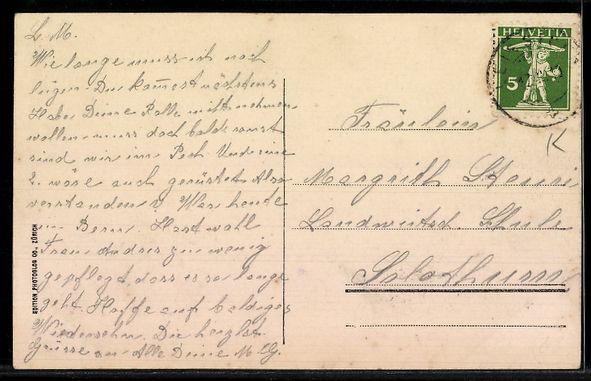 L. M.
Wie lange muss ich noch
lügen. Du kannst nächstens
Habe Deine Rolle mitnehmen
wollen muss doch bald sonst
sind wir im Pech Und eine
2. wäre auch gerüstet Also
verstanden War heute
in Bern. Hast wohl
Frau Andres zu wenig
gepflegt, dass es so lange
geht. Hoffe auf baldiges
Wiedersehn. Die herzlst
Grüsse an Alle Deine M. G.
EDITION PHOTOGLOB CO., ZÜRICH
HELVETIA
5
Fräulein
Margrith
Landwirtsch Schule
Solothurn
K